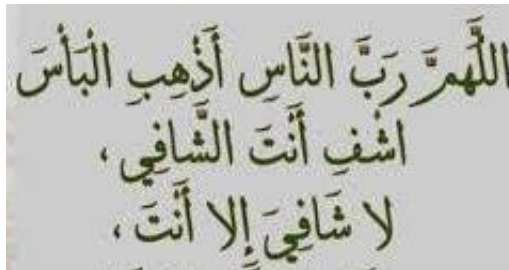 اللَّهُمَّ رَبَّ النَّاسِ أَذْهِبِ الْبَأْسَ
اشْفِ أَنْتَ الشَّافِي ،
لا شَافِيَ إِلا أَنْتَ ،